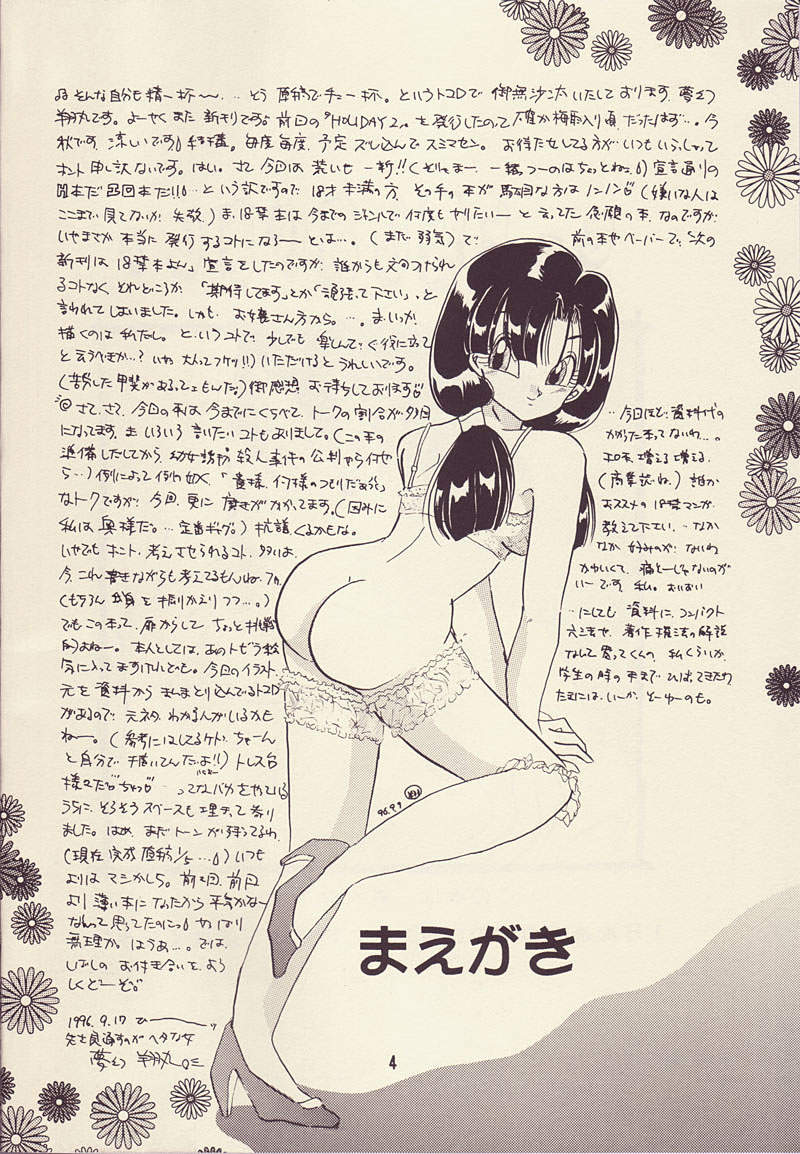 そんな自分も精一杯〜…。とう原稿で手一杯。というトコロで御無沙汰いたしております。夢幻
翔丸です。よーやくまた新刊です。前回の『HOLIDAY 2』を発行したのって確か梅雨入り頃だったはず…。今
秋です 涼しいです 毎度毎度、予定ズレ込んでスミマセン。お待たせしてる方がいつもいらっしゃって
ホント申し訳ないです。はい。さて今回は 一新!!
…という訳ですので 18才未満の方、その手の本が駄目な方はノンノン(嫌いな人は
ここまで見てないか 失敬)ま、18禁本は今までのジャンルで何度もやりたいーと云ってた念願の本、なのですが
いやまさか本当に発行するコトになろーとは…。(まだ弱気)で 前の本やペーパーで「次の
新刊は18禁本よん」宣言をしたのですが 誰からも文句つけられ
るコトなく、それどころか「期待してます」とか「頑張って下さい」と
言われてしまいました。しかも お嬢さん方から。…。まいっか
描くのは私だし。というコトで 少しでも楽しんで(役に立って
と云うべきか…? いや 大人ってフケツ!!)いただけるとうれしいです。
(苦労した甲斐があるってともんだ)御感想お待ちしております
さて、さて、今回の本は今までにくらべて、トークの割合が多目
になってます。ま いろいろ言いたいコトもありまして。(この本の
準備したしてから 幼女 殺人事件の公判やら何やら
ら…)例によって例の如く、「貴様、何様のつもりだぁ」
なトークですが 今回、更に磨きがかかってます。(因みに
私は奥様だ。…定番ギャグ)抗議くるかもな。
いやでも ホント、考えさせられるコト、多いよ。
今、これ書きながらも考えてるもんねー。
(もちろん 自身を振りかえりつつ…。)
でもこの本って、扉からしてちょっと挑戦
的よねー。本人としては、あのトビラ絵
気に入ってますけれども。今回のイラスト、
元を資料からまんまとり込んでいるトコロ
があるので 元ネタわかる人がいるかも
ねー。(参考にはしてるケド、ちゃーんと
と自分で描いてんだよ!!)トレス台
様々だ ってなバカをやっている
うちに、そろそろスペースも埋まって参り
ました。はぁ、まだトーンが残ってるわ
(現在 完成原稿1/5…)いつも
よりは マシかしら。前々回、前回
より薄い本になったから平気かなー
なんて思ってたのにっ やはり
無理か ほうぁ…。では、
しばしのお付き合いを、よろ
しくどーぞ。
1996.9.17 ひーーーッ
先を見通すのがヘタな女
夢幻 翔丸
…今回ほど資料代の
かかった本ってないわ…。
エロ本、増える増える。
(商業誌ね)誰か
おススメの18禁マンガ
教えて下さい。…なか
なか好みのが ないわ
かわいくて、痛そーじゃないのが
いーです 私。
…にしても資料に、コンパクト
六法や 著作権法の解説
なんて買ってくんの、私くらいか、
学生の時の本まで ひっぱってきたり
たまには、いーか、どーゆーのも。
96.9.9
まえがき
4